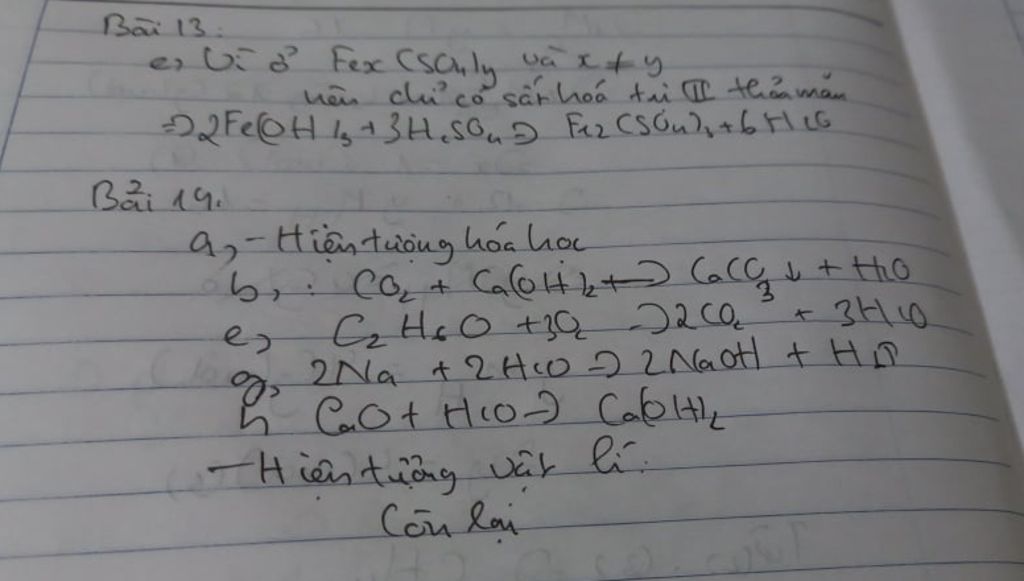 Bài 13:
e, Vì ở Fex(SO4)y và x ≠ y
nên chỉ có sắt hoá trị III thỏa mãn
=> 2Fe(OH)3 + 3H2SO4 => Fe2(SO4)3 + 6H2O
Bài 14.
a, - Hiện tượng hóa học
b, : CO2 + Ca(OH)2 → CaCO3↓ + H2O
e, C2H6O + 3O2 → 2CO2 + 3H2O
g, 2Na + 2H2O → 2NaOH + H2↑
h CaO + H2O → Ca(OH)2
- Hiện tượng vật lí:
Còn lại